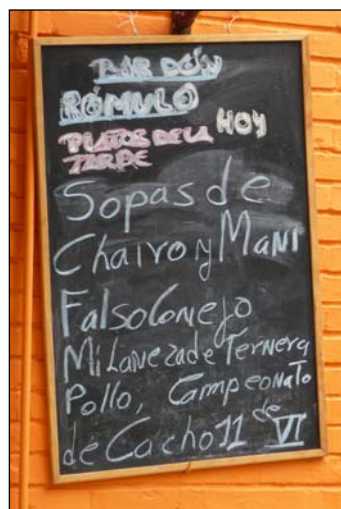 BAR DÓN
RÓMULO
HOY
PLATOS DE LA
TARDE
Sopas de
Chairo y Mani
Falso Conejo
Milaneza de Ternera
Pollo, Campeonato
de Cacho 11 de VI